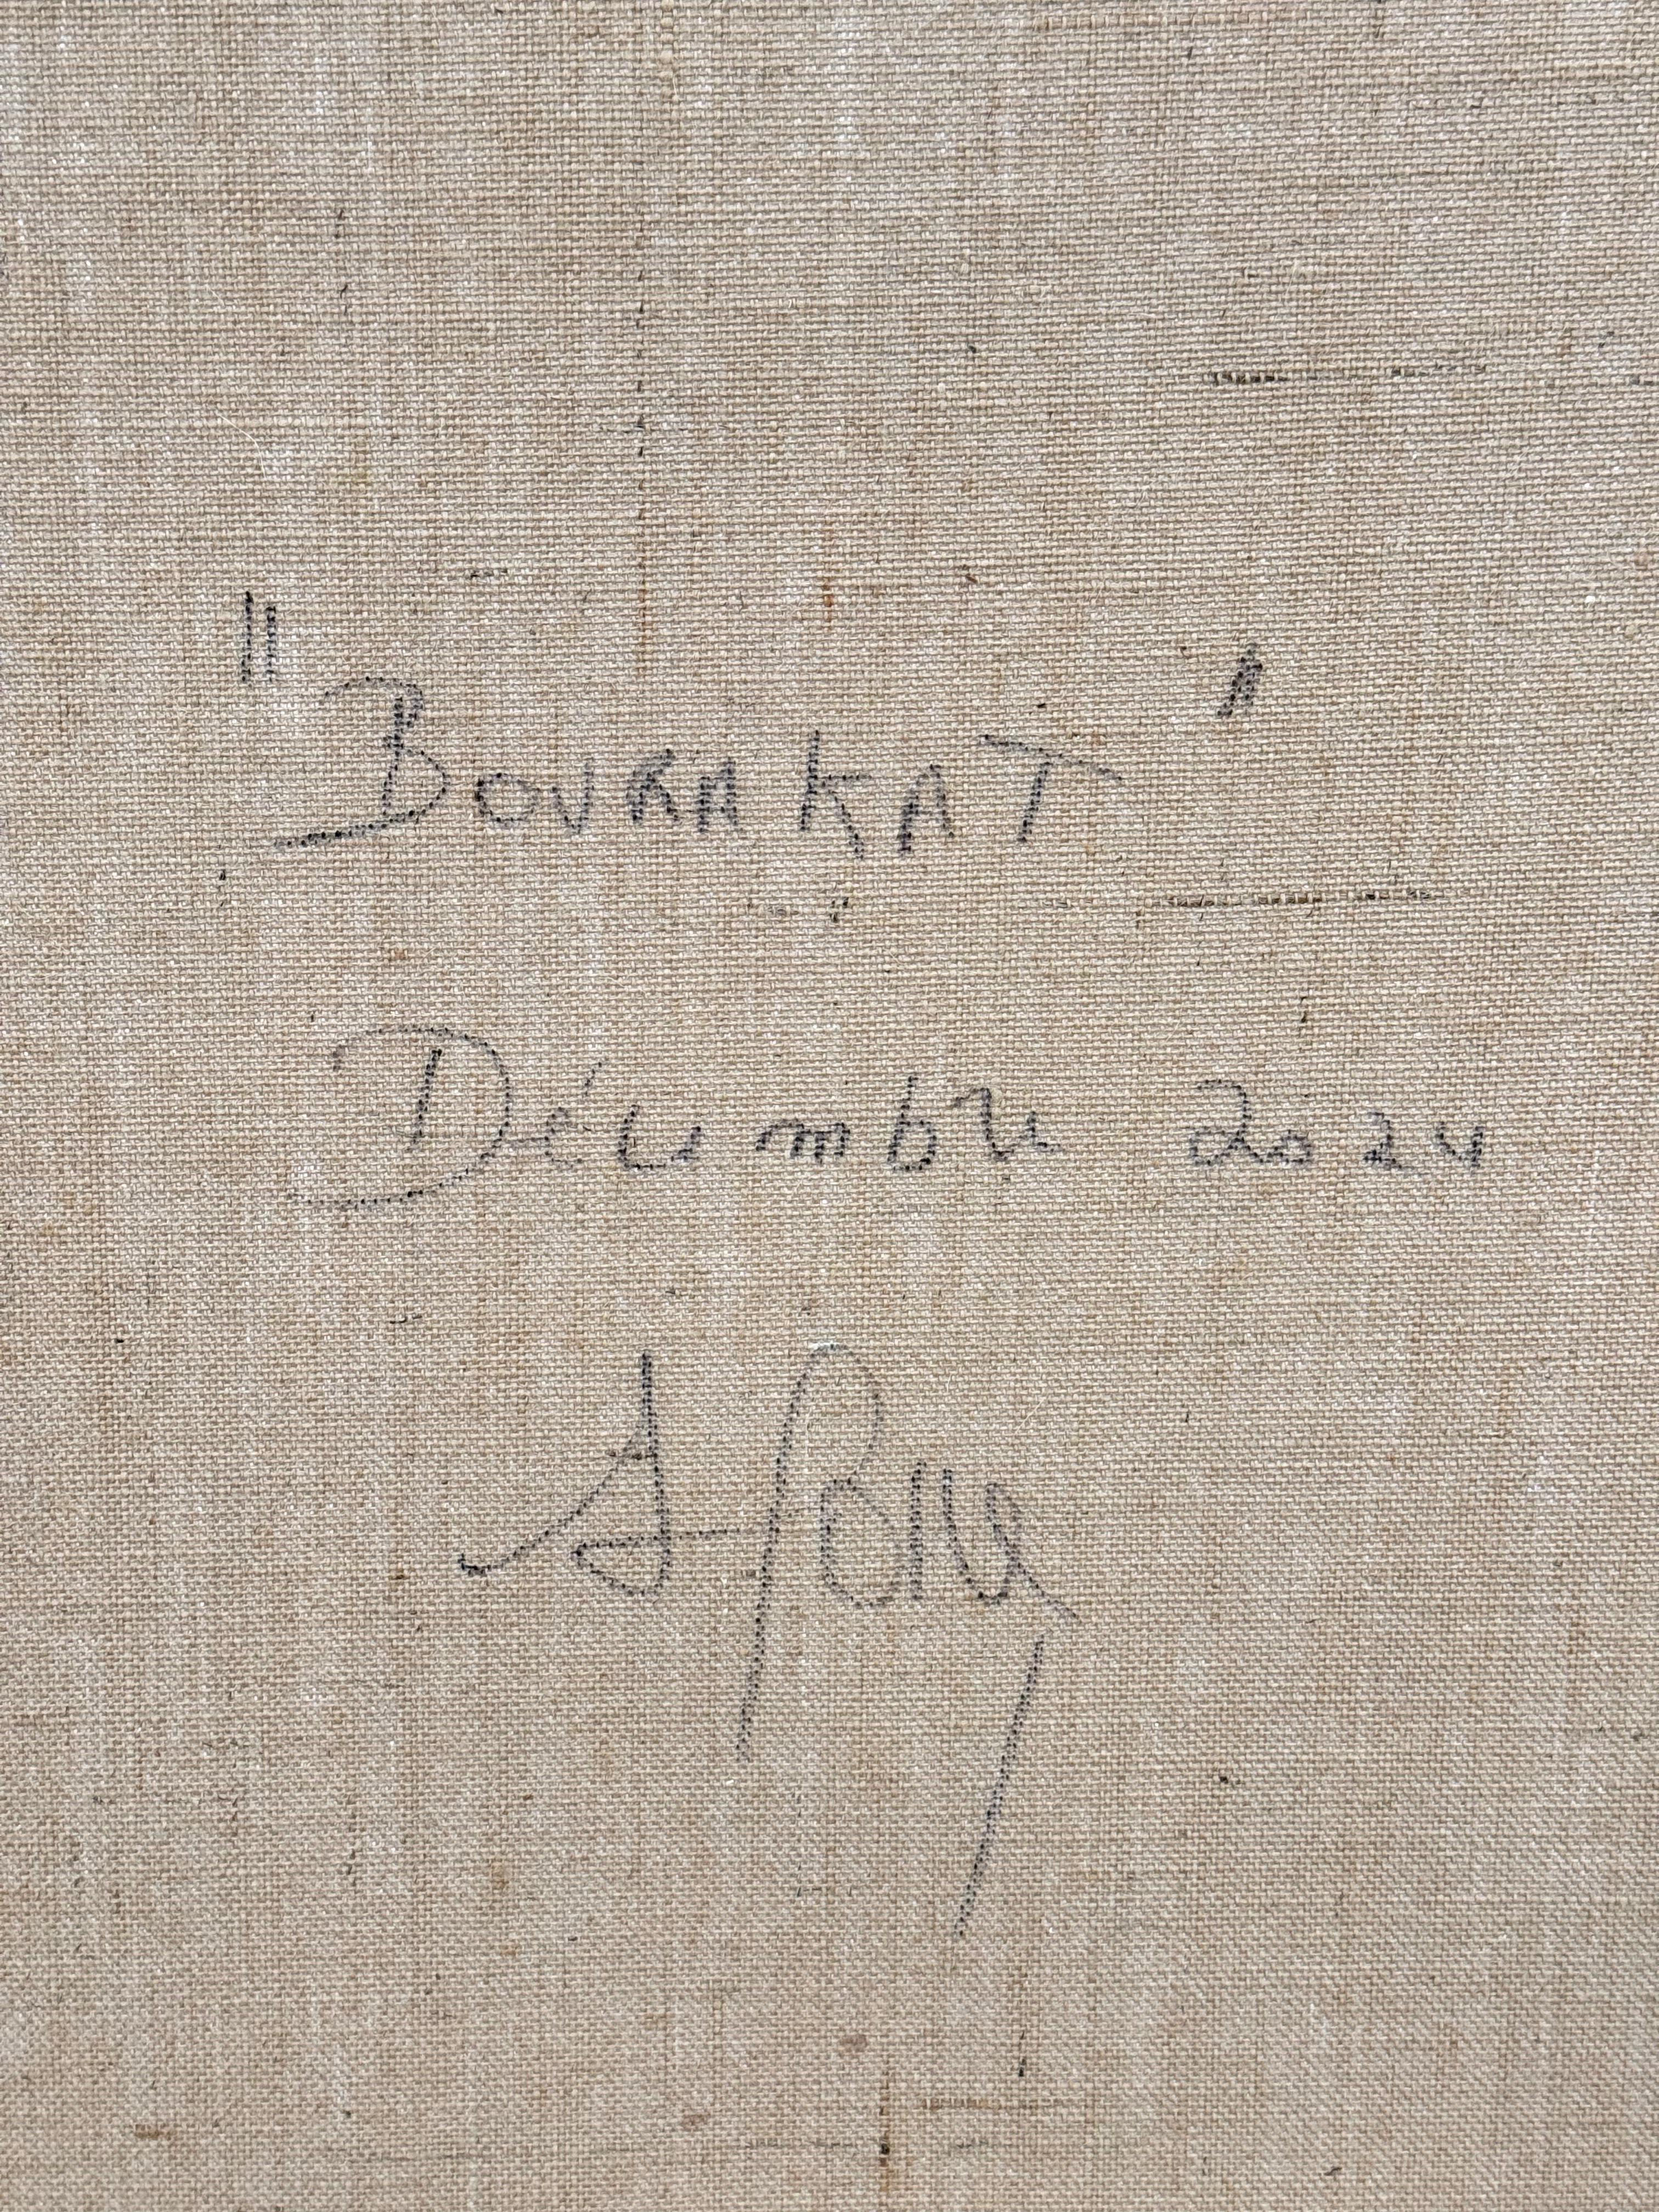 "BOURAKAT"
Décembre 2024